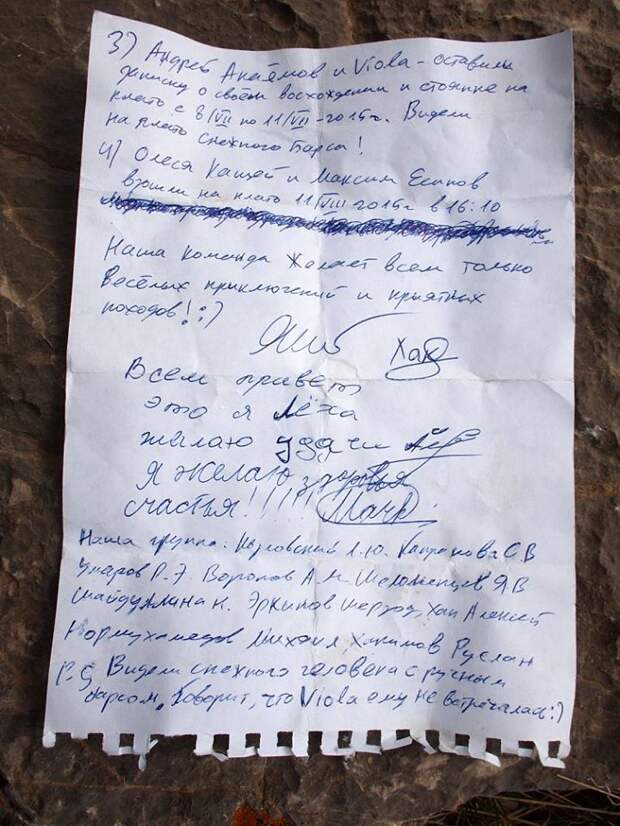 3) Андрей Акаёмов и Viola - оставили
записку о своём восхождении и стоянке на
плато с 8/VII по 11/VII-2015г. Видели
на плато Снежного Барса!
4) Олеся Кащей и Максим Есипов
взошли на плато 11/VIII 2015г в 16:10
Наша команда желает всем только
весёлых приключений и приятных
походов! :)
Всем привет
это я Лёха
жалаю удачи
Я желаю здоровья
счастья!!!!!
Наша группа. Козловский Л.Ю. Капракова С.В
Умаров Р.Э. Воропов А.М. Шеломенцев Я В
Шайдуллина К. Эркинов Шерзод, Хан Алексей
Нормухамедов Михаил, Хакимов Руслан
P.S Видели снежного человека с ручным
барсом, говорит, что Viola ему не встречалась :)